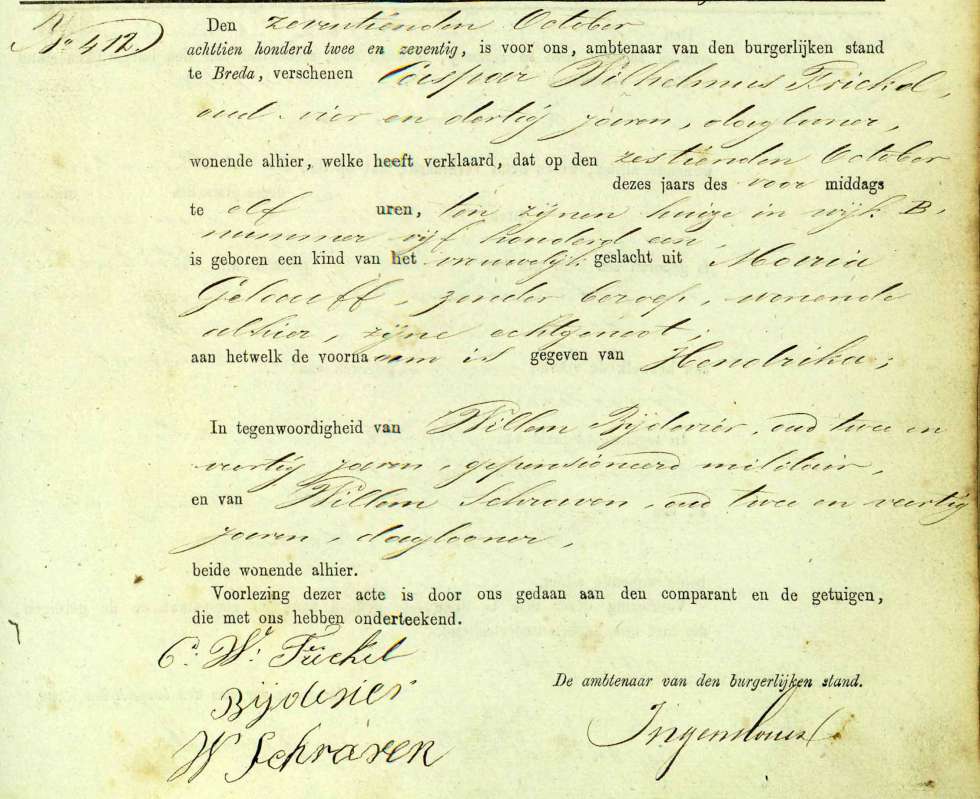 No 412.
Den zeventienden October
achttien honderd twee en zeventig, is voor ons, ambtenaar van den burgerlijken stand
te Breda, verschenen Caspar Wilhelmus Frickel,
oud vier en dertig jaren, daglooner,
wonende alhier, welke heeft verklaard, dat op den zestienden October
dezes jaars des voor middags
te elf uren, ten zijnen huize in wijk B.
nummer vijf honderd een,
is geboren een kind van het vrouwelijk geslacht uit Maria
Gelauff, zonder beroep, wonende
alhier, zijne echtgenoot;
aan hetwelk de voornaam is gegeven van Hendrika;
In tegenwoordigheid van Willem Bijdevier, oud twee en
veertig jaren, gepensioneerd militair,
en van Willem Schraven, oud twee en veertig
jaren, daglooner,
beide wonende alhier.
Voorlezing dezer acte is door ons gedaan aan den comparant en de getuigen,
die met ons hebben onderteekend.
C. W. Frickel
De ambtenaar van den burgerlijken stand.
Bijdevier
Ingenhousz
W Schraven